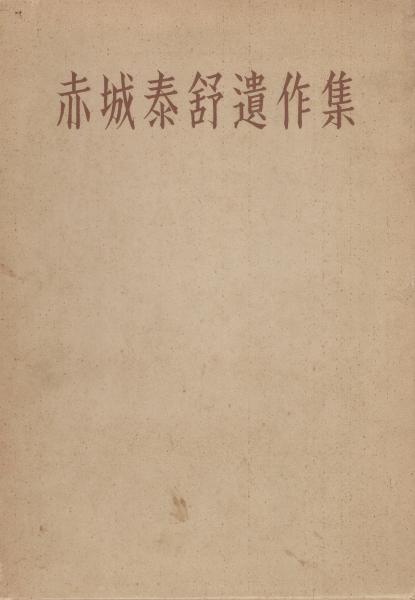 赤城泰舒遺作集